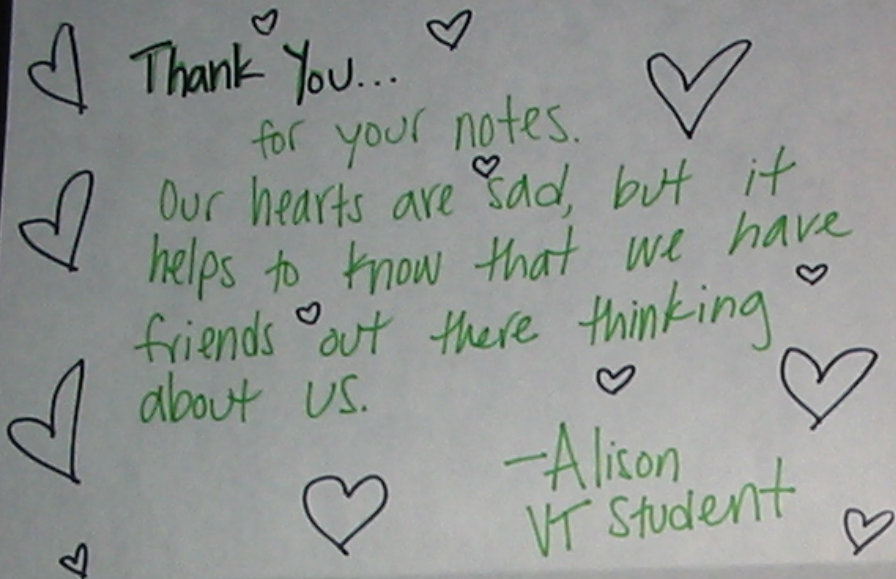 Thank You...
for your notes.
Our hearts are sad, but it
helps to know that we have
friends out there thinking
about us.
-Alison
VT Student